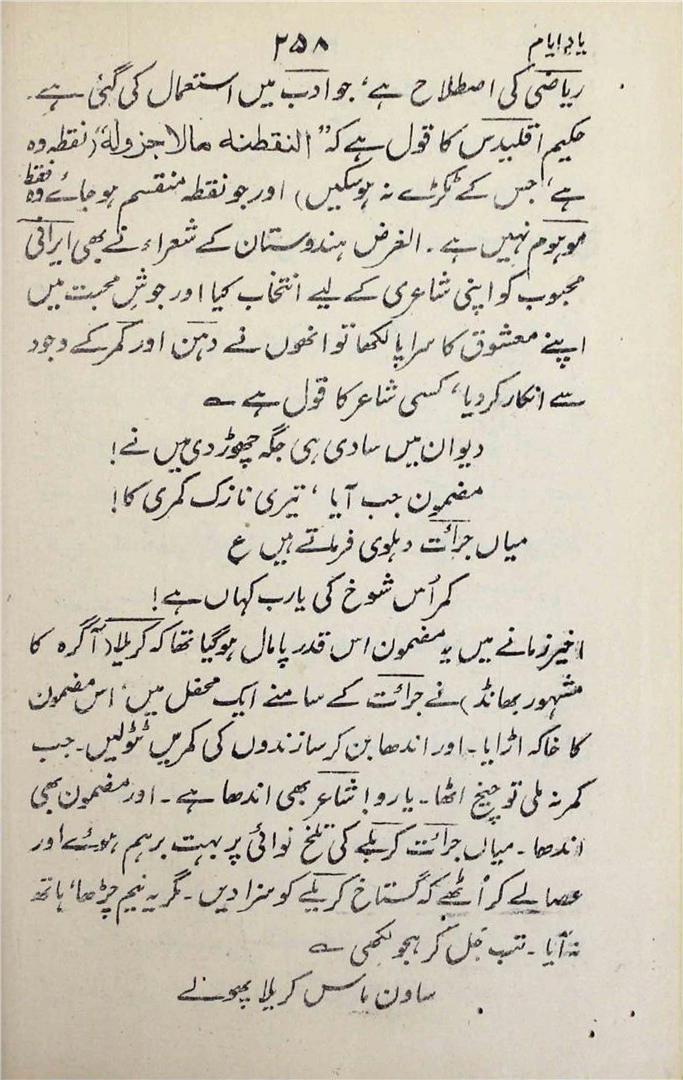 یادِ ایام ۲۵۸
ریاضی کی اصطلاح ہے، جو ادب میں استعمال کی گئی ہے۔
حکیم اقلیدس کا قول ہے کہ "النقطنہ مالا جزولہ" (نقطہ وہ
ہے، جس کے ٹکڑے نہ ہو سکیں) اور جو نقطہ منقسم ہو جائے وہ نقطہ
موہوم نہیں ہے۔ الغرض ہندوستان کے شعراء نے بھی ایرانی
محبوب کو اپنی شاعری کے لیے انتخاب کیا اور جوشِ محبت میں
اپنے معشوق کا سراپا لکھا تو انھوں نے دہن اور کمر کے وجود
سے انکار کر دیا، کسی شاعر کا قول ہے ؎
دیوان میں سادی ہی جگہ چھوڑ دی میں نے!
مضمون جب آیا، تیری نازک کمری کا!
میاں جرأت دہلوی فرماتے ہیں ع
کمر اُس شوخ کی یارب کہاں ہے!
اخیر زمانے میں یہ مضمون اس قدر پامال ہو گیا تھا کہ کریلا (آگرہ کا
مشہور بھانڈ) نے جرأت کے سامنے ایک محفل میں، اس مضمون
کا خاکہ اڑایا۔ اور اندھا بن کر سازندوں کی کمریں ٹٹولیں۔ جب
کمر نہ ملی تو چیخ اٹھا۔ یارو! شاعر بھی اندھا ہے۔ اور مضمون بھی
اندھا۔ میاں جرأت کریلے کی تلخ نوائی پر بہت برہم ہوئے اور
عصا لے کر اُٹھے کہ گستاخ کریلے کو سزا دیں۔ مگر یہ نیم چڑھا، ہاتھ
نہ آیا۔ تب جل کر ہجو لکھی ؎
ساون ماس کریلا پھولے